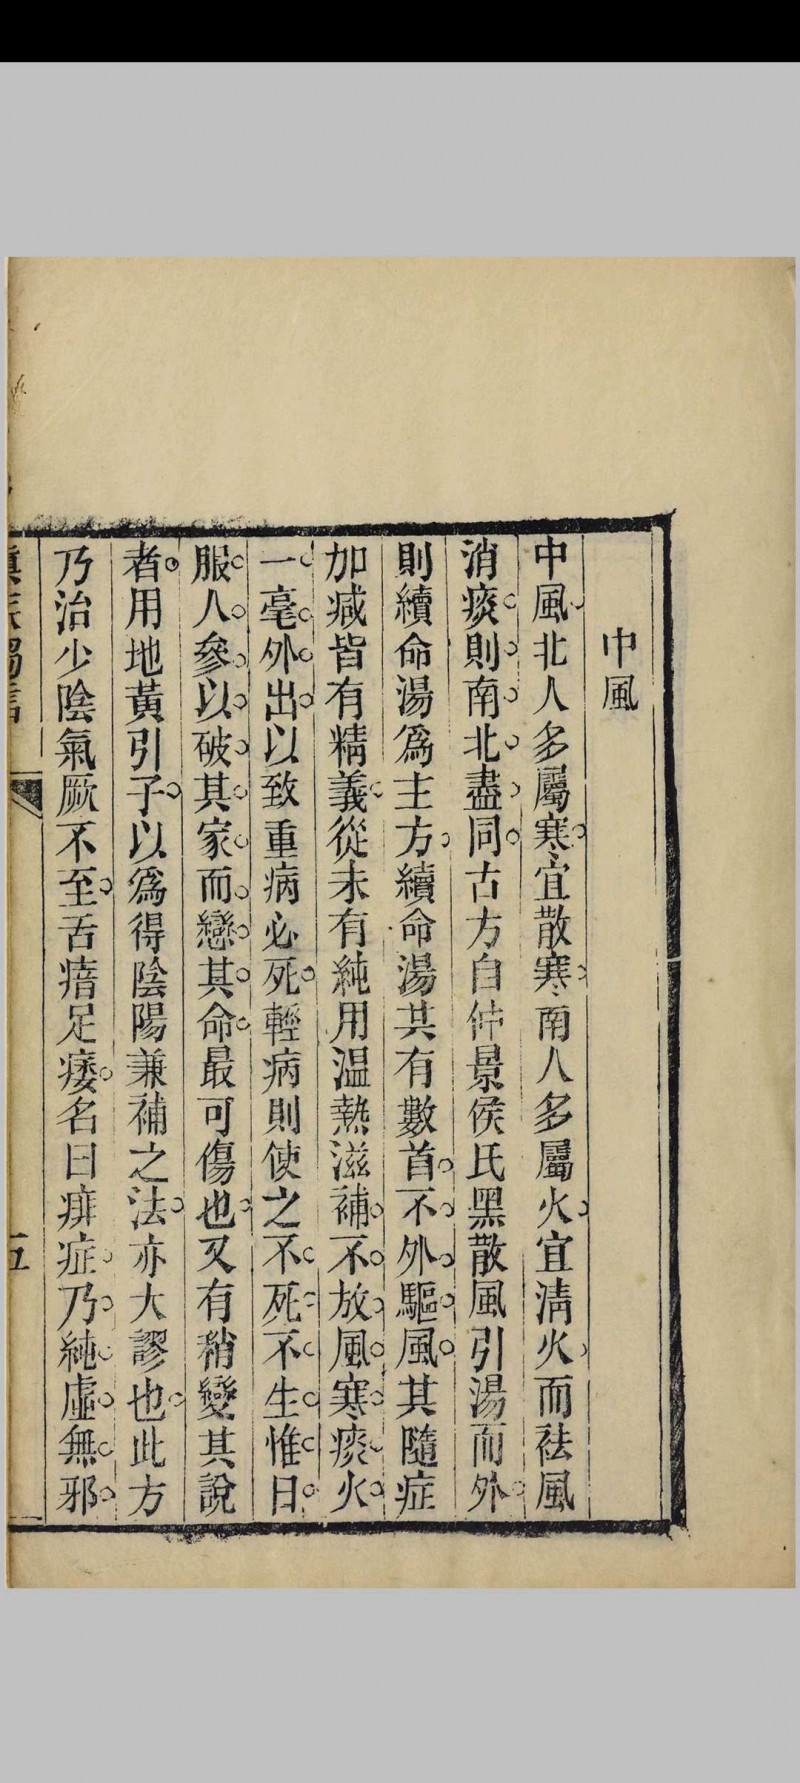 中風
中風北人多屬寒宜散寒南人多屬火宜淸火而祛風
消痰則南北盡同古方自仲景侯氏黑散風引湯而外
則續命湯爲主方續命湯其有數首不外驅風其隨症
加減皆有精義從未有純用温熱滋補不放風寒痰火
一毫外出以致重病必死輕病則使之不死不生惟日
服人參以破其家而戀其命最可傷也又有稍變其說
者用地黃引子以爲得陰陽兼補之法亦大謬也此方
乃治少陰氣厥不至舌瘖足痿名曰痱症乃純虛無邪
愼疾芻言
五